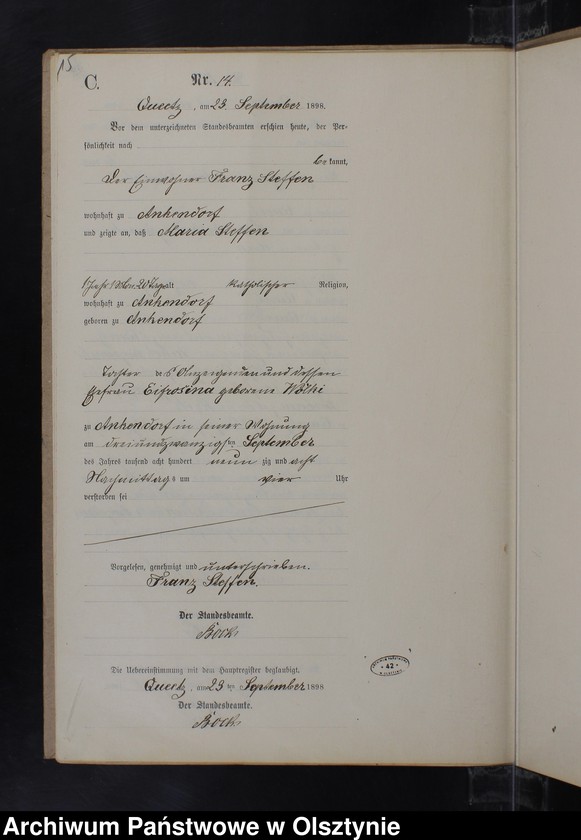 15
C.
Nr. 14.
Queetz, am 23. September 1898.
Vor dem unterzeichneten Standesbeamten erschien heute, der Per-
sönlichkeit nach
be kannt,
der Einwohner Franz Steffen
wohnhaft zu Ankendorf
und zeigte an, daß Maria Steffen
1 Jahr 1 Mon. 20 Tage alt katholischer Religion,
wohnhaft zu Ankendorf
geboren zu Ankendorf
Tochter des Anzeigenden und dessen
Ehefrau Eifrosina geborene Wölki
zu Ankendorf in seiner Wohnung
am dreiundzwanzigsten September
des Jahres tausend acht hundert neun zig und acht
Nachmittags um vier Uhr
verstorben sei
Vorgelesen, genehmigt und unterschrieben.
Franz Steffen.
Der Standesbeamte.
Böck
Die Uebereinstimmung mit dem Hauptregister beglaubigt.
Queetz, am 23 ten September 1898
Der Standesbeamte.
Böck
42
Archiwum Państwowe w Olsztynie